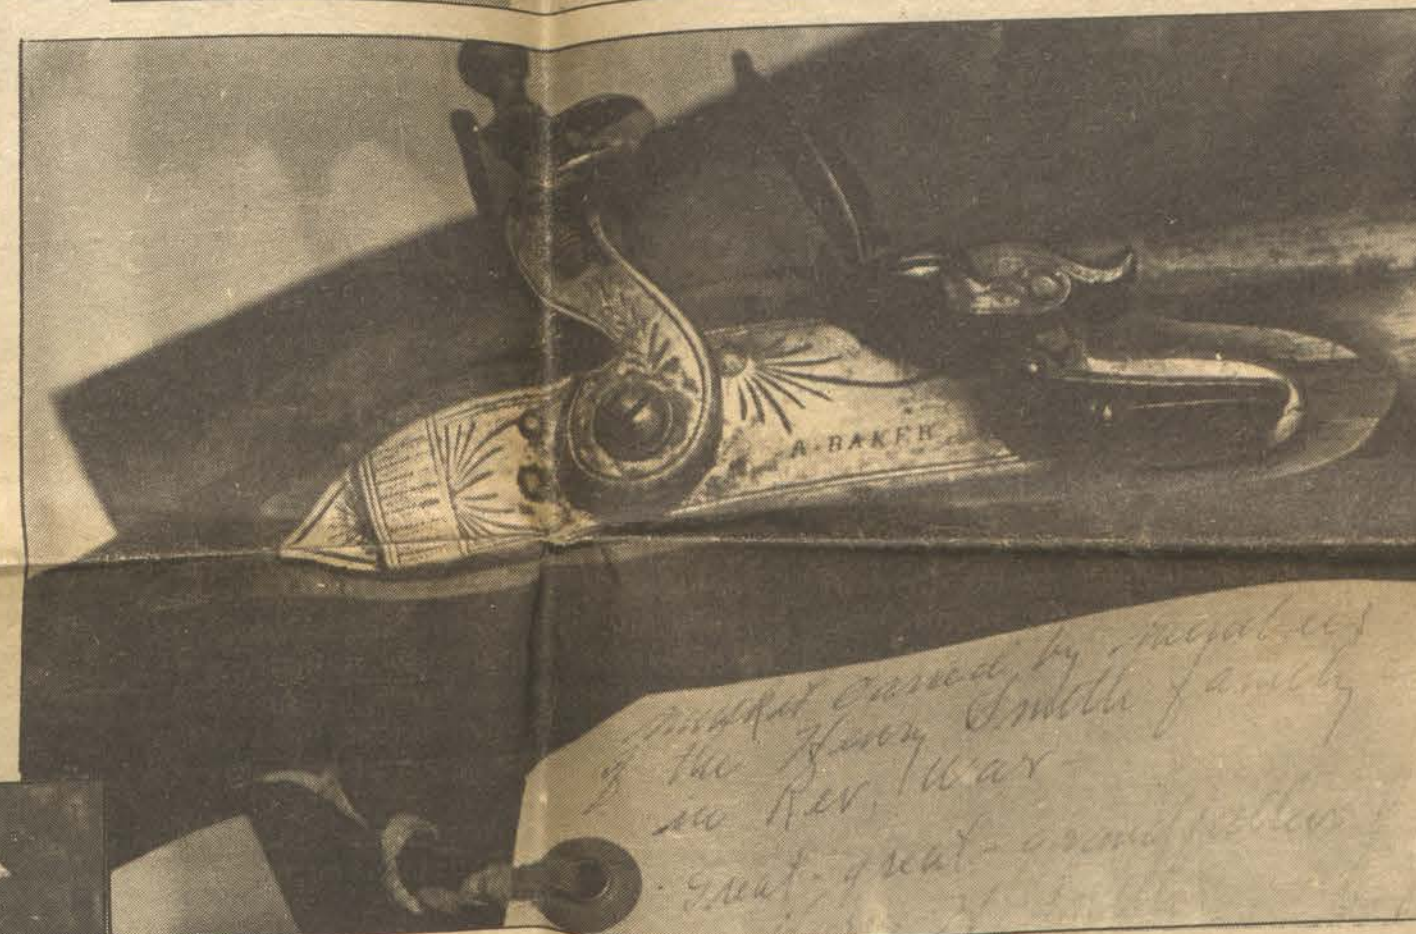 A·BAKER
musket owned by members
of the Henry Smith family
in Rev. War-
Great-great-grandfather